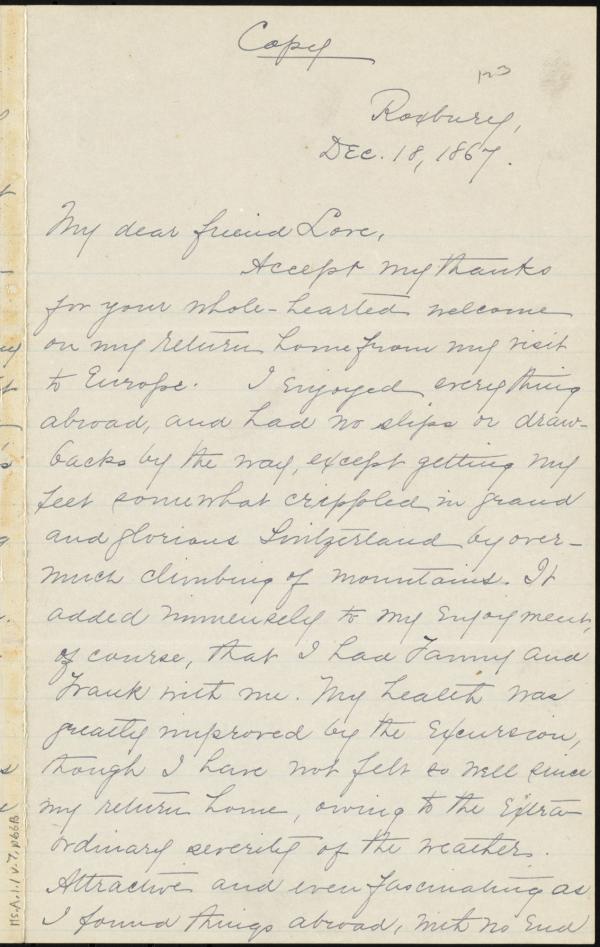 Copy
123
Roxbury,
Dec. 18, 1867.
My dear friend Love,
Accept my thanks
for your whole-hearted welcome
on my return home from my visit
to Europe. I enjoyed everything
abroad, and had no slips or draw-
backs by the way, except getting my
feet somewhat crippled in grand
and glorious Switzerland by over-
much climbing of mountains. It
added immensely to my enjoyment,
of course, that I had Fanny and
Frank with me. My health was
greatly improved by the excursion,
though I have not felt so well since
my return home, owing to the extra-
ordinary severity of the weather.
Attractive and even fascinating as
I found things abroad, with no end
Ms.A.1.1 v.7, p66B